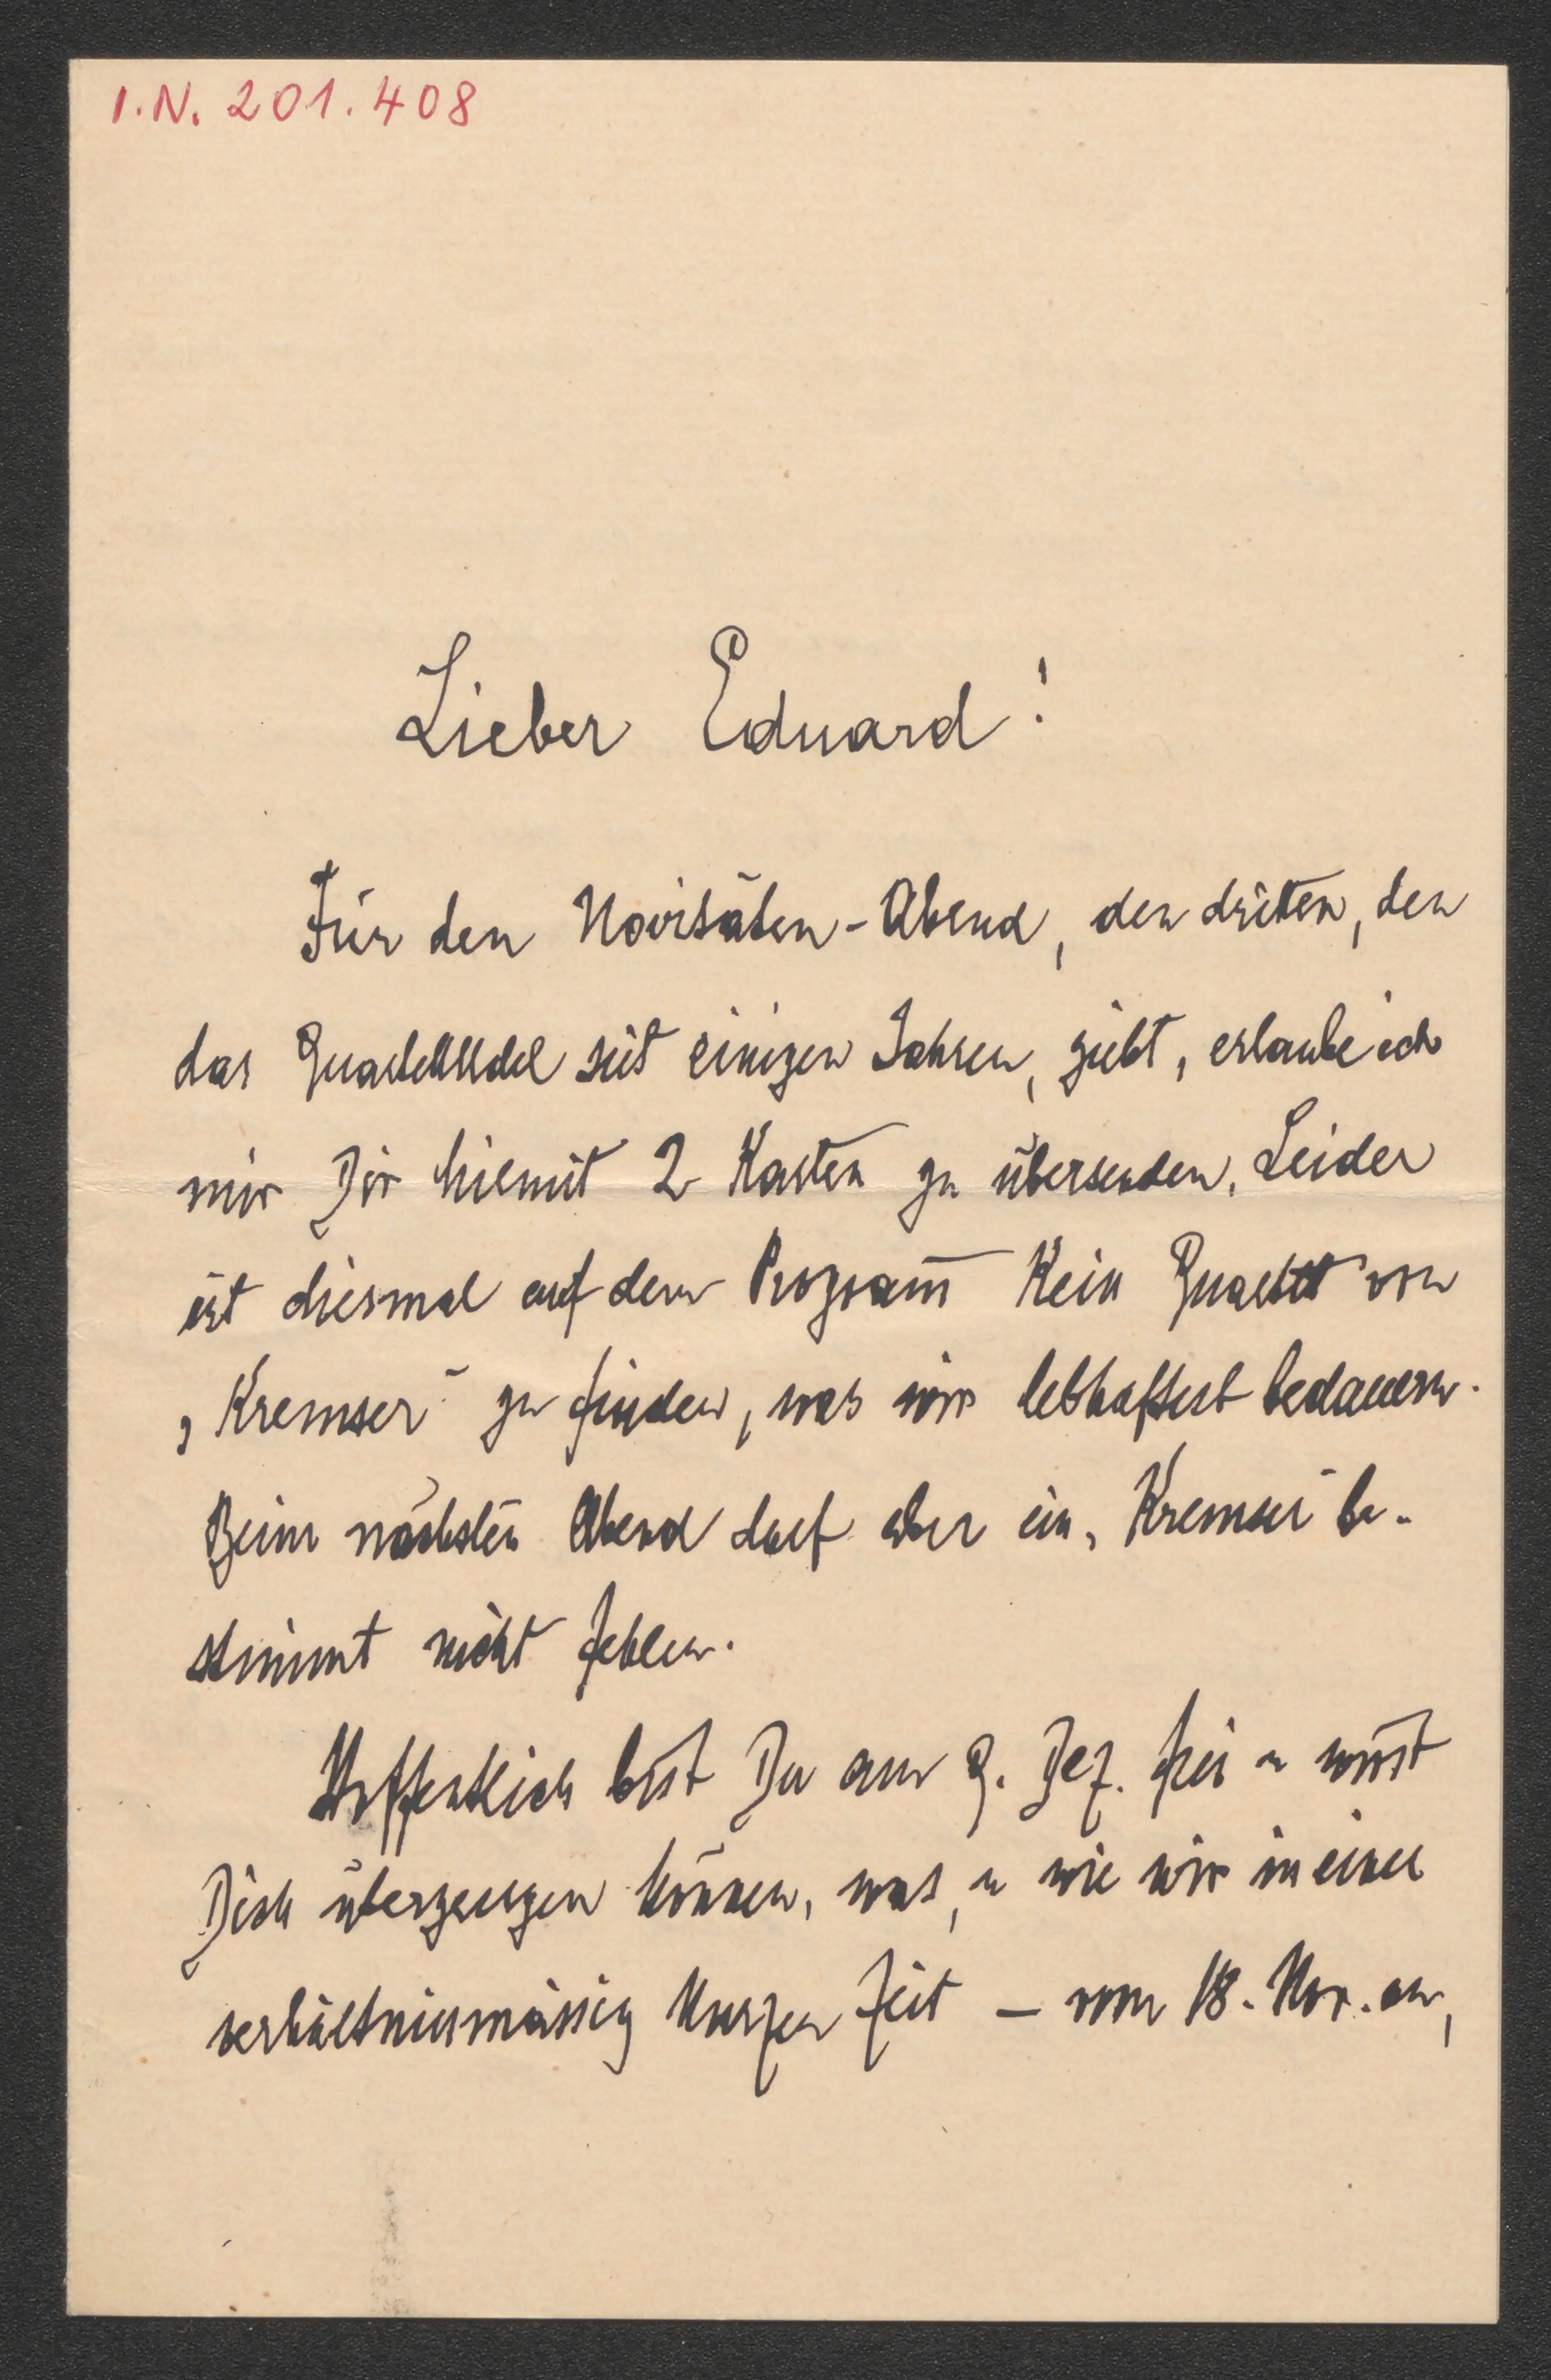 I.N. 201.408
Lieber Eduard!
Für den Novitäten-Abend, den dritten, den
das Quartett Udel seit einigen Jahren, giebt, erlaube ich
mir Dir hiemit 2 Karten zu übersenden. Leider
ist diesmal auf dem Program̄ kein Quartett von
„Kremser“ zu finden, was wir lebhaftest bedauern.
Beim nächsten Abend darf aber ein „Kremser“ be-
stimmt nicht fehlen.
Hoffentlich bist Du am 9. Dez. frei u wirst
Dich überzeugen können, was, u wie wir in einer
verhältnissmässig kurzen Zeit – vom 18. Nov. an,